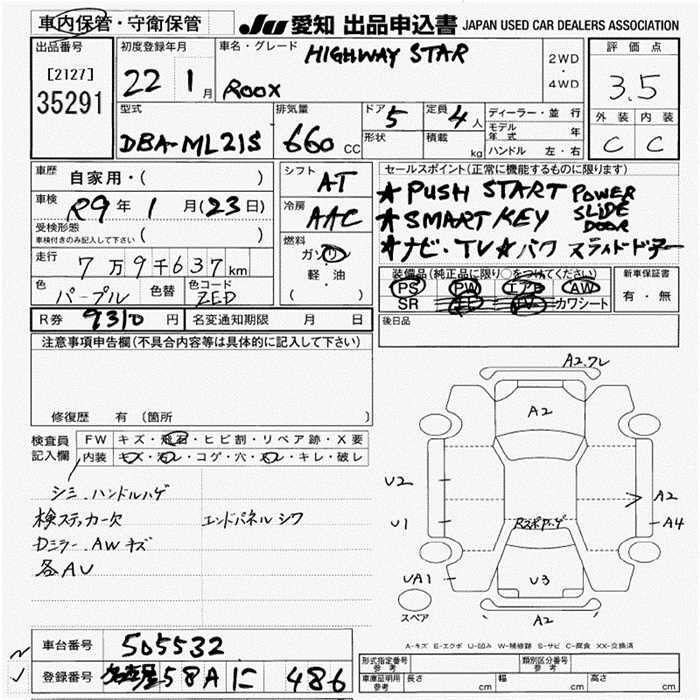 車内保管・守衛保管
JU 愛知 出品申込書 JAPAN USED CAR DEALERS ASSOCIATION
出品番号
[2127]
35291
初度登録年月
22 1月
車名・グレード
HIGHWAY STAR
ROOX
2WD
・
4WD
評価点
3.5
外装 内装
C C
型式
DBA-ML21S
排気量
660 CC
ドア 5
形状
定員 4人
積載 kg
ディーラー・並行
モデル年式 年
ハンドル 左・右
車歴 自家用・( )
車検 R9年 1月(23日)
受検形態
車検付きのみ記入して下さい ( )
走行 7万9千637km
色 パープル 色替 色コード ZED
シフト AT
冷房 AAC
燃料
ガソリン
軽・油
( )
セールスポイント(正常に機能するものに限ります)
★PUSH START POWER
★SMART KEY SLIDE
DOOR
★ナビ・TV★パワ スライドドアー
装備品(純正品に限り○をつけてください)
PS PW エアB AW
SR カワシート
新車保証書
有・無
R券 9310円 名変通知期限 月 日
後日品
注意事項申告欄(不具合内容等は具体的に記入して下さい)
修復歴 有〔箇所
検査員
記入欄
FW キズ・飛石・ヒビ割・リペア跡・X要
内装 キズ・汚レ・コゲ・穴・スレ・キレ・破レ
シミ.ハンドルハゲ
検ステッカー欠 エンドパネルシワ
Dミラー.AWキズ
各AU
A2.ワレ
A2
U2
U1
A2
A4
UA1
U3
スペア
A2
A-キズ E-エクボ U-凹み W-補修跡 S-サビ C-腐食 XX-交換済
車台番号 505532
登録番号 名古屋58A に 486
型式指定番号
参考
類別区分番号
参考
車庫証明用
参考
長さ cm 幅 cm 高さ cm